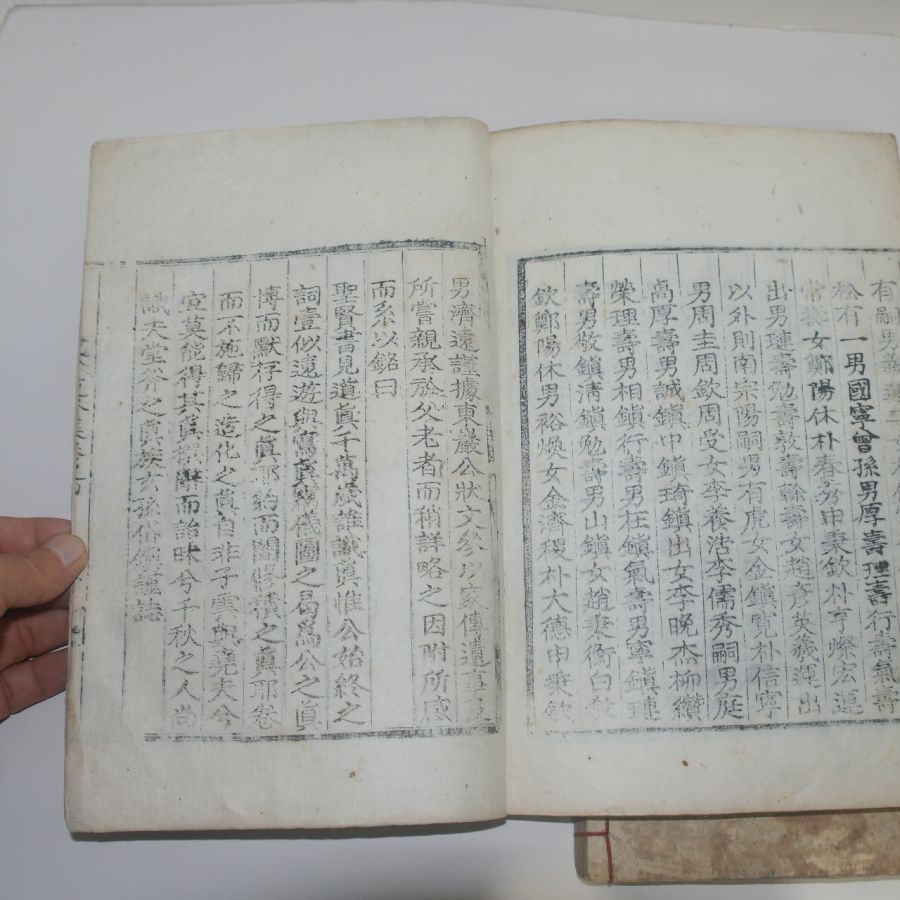 有嗣男義運二女
松有一男國寧曾孫男厚壽理壽行壽氣壽
常壽女鄭陽休朴春秀申秉欽朴亨燦宏運
出男璉壽勉壽敦壽幹壽女趙彦英羲運出
以外則南宗陽嗣男有虎女金鎭寬朴信寧
男周圭周欽周受女李養浩李儒秀嗣男庭
高厚壽男誠鎭中鎭琦鎭出女李晩杰柳纘
榮理壽男相鎭行壽男在鎭氣壽男寧鎭璉
壽男敬鎭淸鎭勉壽男山鎭女趙秉衡白
欽鄭陽休男裕煥女金濟稷朴大德申秉欽
男濟遠謹據東巖公狀文參以家傳遺事及
所嘗親承於父老者而稍詳略之因附所感
而系以銘曰
聖賢書見道眞千萬歲誰識眞惟公始終之
詞壹似遠遊與寫眞 儀圖之曷爲公之眞
博而默存得之眞耶約而闇修積之眞耶卷
而不施歸之造化之眞自非子雲與堯夫兮
宜莫能得其眞 辭而詒昧兮千秋之人尚
識夫堂斧之眞族玄孫 謹誌